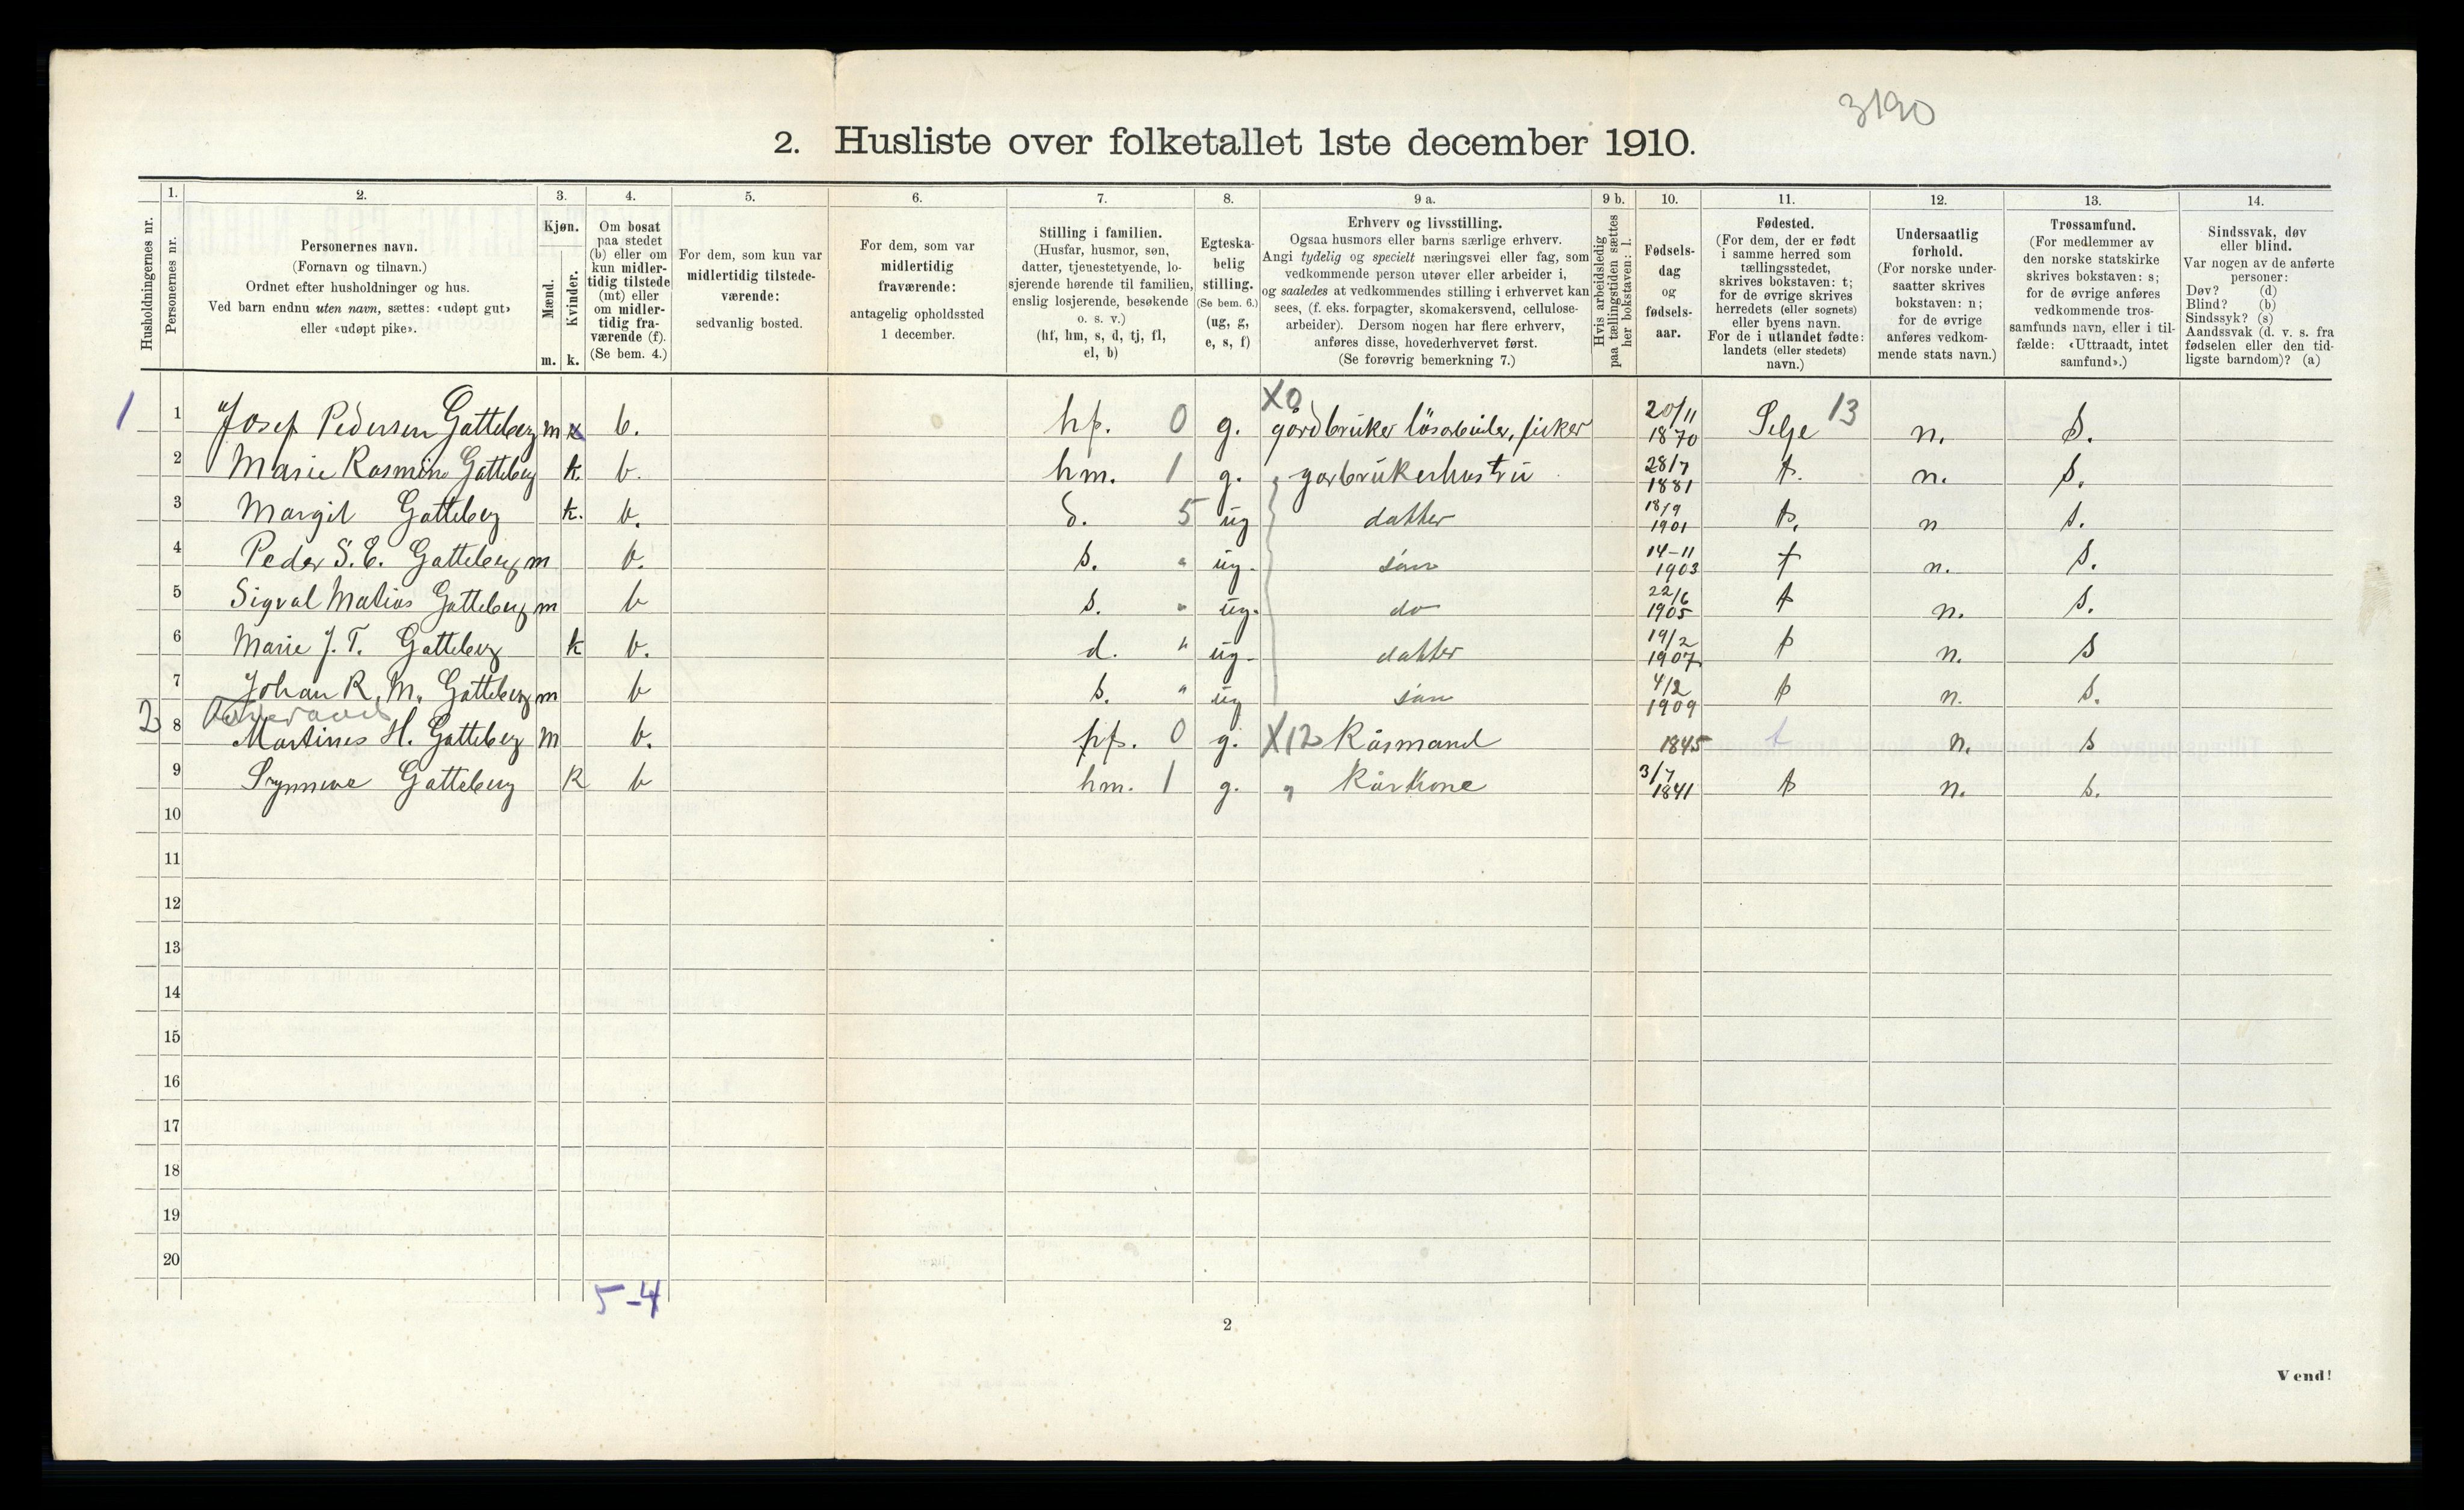 3190
2. Husliste over folketallet 1ste december 1910.
Husholdningernes nr.
1.
Personernes nr.
2.
Personernes navn.
(Fornavn og tilnavn.)
Ordnet efter husholdninger og hus.
Ved barn endnu uten navn, sættes: «udøpt gut»
eller «udøpt pike».
3.
Kjøn.
Mænd.
m.
Kvinder.
k.
4.
Om bosat
paa stedet
(b) eller om
kun midler-
tidig tilstede
(mt) eller
om midler-
tidig fra-
værende (f).
(Se bem. 4.)
5.
For dem, som kun var
midlertidig tilstede-
værende:
sedvanlig bosted.
6.
For dem, som var
midlertidig
fraværende:
antagelig opholdssted
1 december.
7.
Stilling i familien.
(Husfar, husmor, søn,
datter, tjenestetyende, lo-
sjerende hørende til familien,
enslig losjerende, besøkende
o. s. v.)
(hf, hm, s, d, tj, fl,
el, b)
8.
Egteska-
belig
stilling.
(Se bem. 6.)
(ug, g,
e, s, f)
9 a.
Erhverv og livsstilling.
Ogsaa husmors eller barns særlige erhverv.
Angi tydelig og specielt næringsvei eller fag, som
vedkommende person utøver eller arbeider i,
og saaledes at vedkommendes stilling i erhvervet kan
sees, (f. eks. forpagter, skomakersvend, cellulose-
arbeider). Dersom nogen har flere erhverv,
anføres disse, hovederhvervet først.
(Se forøvrig bemerkning 7.)
9 b.
Hvis arbeidsledig
paa tællingstiden sættes
her bokstaven: l.
10.
Fødsels-
dag
og
fødsels-
aar.
11.
Fødested.
(For dem, der er født
i samme herred som
tællingsstedet,
skrives bokstaven: t;
for de øvrige skrives
herredets (eller sognets)
eller byens navn.
For de i utlandet fødte:
landets (eller stedets)
navn.)
12.
Undersaatlig
forhold.
(For norske under-
saatter skrives
bokstaven: n;
for de øvrige
anføres vedkom-
mende stats navn.)
13.
Trossamfund.
(For medlemmer av
den norske statskirke
skrives bokstaven: s;
for de øvrige anføres
vedkommende tros-
samfunds navn, eller i til-
fælde: «Uttraadt, intet
samfund».)
14.
Sindssvak, døv
eller blind.
Var nogen av de anførte
personer:
Døv? (d)
Blind? (b)
Sindssyk? (s)
Aandssvak (d. v. s. fra
fødselen eller den tid-
ligste barndom)? (a)
1 1 Josef Pedersen Gatteberg m k b. hf. 0 g. X0 gårdbruker lösarbeider, fisker 20/11 1870 Selje 13 n. S.
2 Marie Rasmine Gatteberg k. b. hm. 1 g. " garbrukerhustru 28/7 1881 t. n. s.
3 Margit Gatteberg k. b. d. 5 ug datter 18/9 1901 t. n s.
4 Peder S. E. Gatteberg m b. s. " ug. sön 14-11 1903 t n. s.
5 Sigval Matias Gatteberg m b s. " ug. do 22/6 1905 t n. s.
6 Marie J. T. Gatteberg k b. d. " ug datter 19/2 1907 t n. s
7 Johan R. M. Gatteberg m b s. " ug sön 4/2 1909 t n. s.
2 8 Martines H. Gatteberg m b. hf. 0 g. X12 Kårmand 1845 t n. s
9 Synneve Gatteberg k b hm. 1 g. " Kårkone 3/7 1841 t n. s.
10
11
12
13
14
15
16
17
18
19
20
5-4
2
Vend!